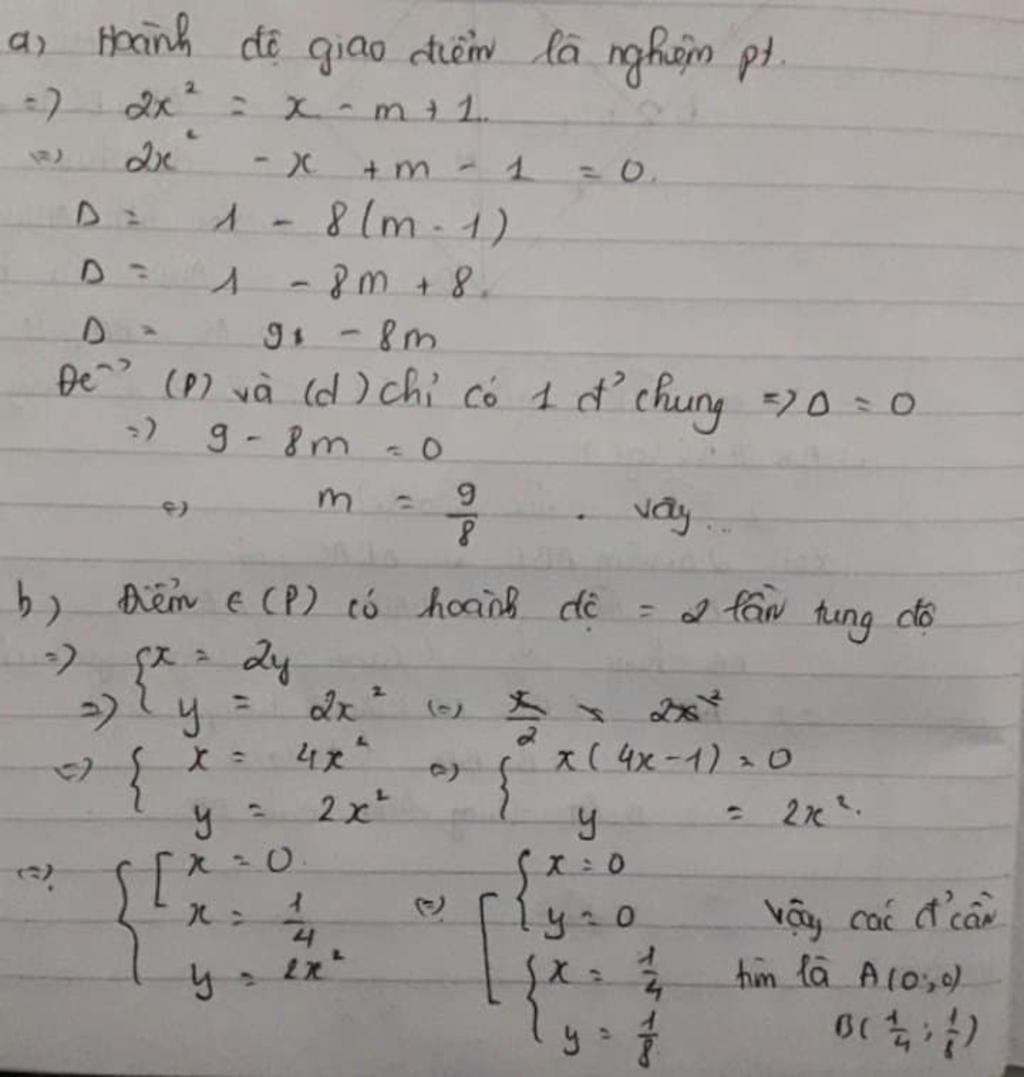 a) Hoành độ giao điểm là nghiệm pt.
=> 2x² = x - m + 1.
<=> 2x² - x + m - 1 = 0.
Δ = 1 - 8(m - 1)
Δ = 1 - 8m + 8.
Δ = 9 - 8m
Để (P) và (d) chỉ có 1 đ' chung => Δ = 0
=> 9 - 8m = 0
<=> m = 9/8 . Vậy...
b) Điểm ∈ (P) có hoành độ = 2 lần tung độ
=> { x = 2y
=> { y = 2x² <=> x/2 = 2x²
<=> { x = 4x² <=> { x(4x - 1) = 0
y = 2x² y = 2x².
<=> { [ x = 0. <=> [ { x = 0
x = 1/4 y = 0 Vậy các đ' cần
y = 2x² { x = 1/4 tìm là A(0;0)
y = 1/8 B(1/4; 1/8)